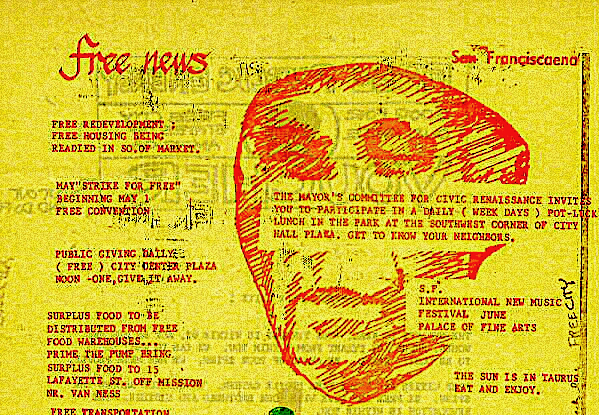 free news
San Franciscaena
FREE REDEVELOPMENT :
FREE HOUSING BEING
READIED IN SO.OF MARKET.
MAY"STRIKE FOR FREE"
BEGINNING MAY 1
FREE CONVENTION
THE MAYOR'S COMMITTEE FOR CIVIC RENAISSANCE INVITES
YOU TO PARTICIPATE IN A DAILY ( WEEK DAYS ) POT-LUCK
LUNCH IN THE PARK AT THE SOUTHWEST CORNER OF CITY
HALL PLAZA. GET TO KNOW YOUR NEIGHBORS.
PUBLIC GIVING DAILY
( FREE ) CITY CENTER PLAZA
NOON -ONE,GIVE IT AWAY.
S.F.
INTERNATIONAL NEW MUSIC
FESTIVAL JUNE
PALACE OF FINE ARTS
SURPLUS FOOD TO BE
DISTRIBUTED FROM FREE
FOOD WAREHOUSES...
PRIME THE PUMP BRING
SURPLUS FOOD TO 15
LAFAYETTE ST. OFF MISSION
NR. VAN NESS
THE SUN IS IN TAURUS
EAT AND ENJOY.
FREE TRANSPORTATION
FREE CITY